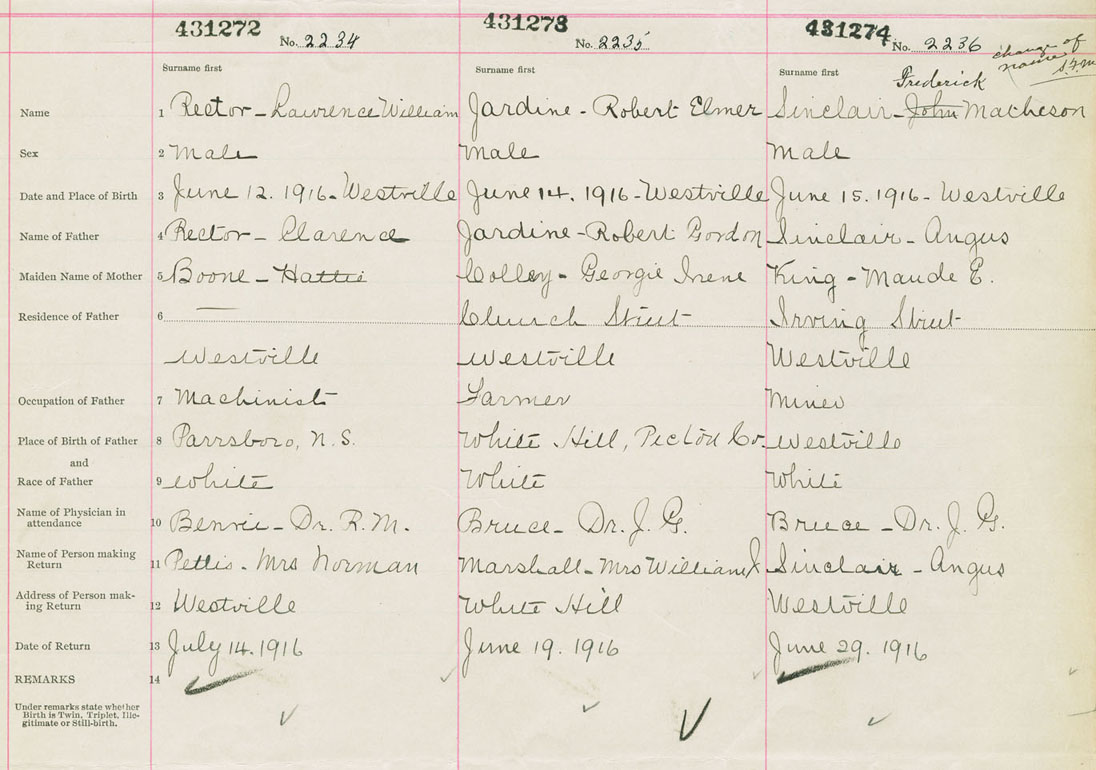 431272 431273 431274
No. 2234 No. 2235 No. 2236 change of name S.F.M
Surname first Surname first Surname first Frederick
Name 1 Rector - Lawrence William Jardine - Robert Elmer Sinclair - John Matheson
Sex 2 Male Male Male
Date and Place of Birth 3 June 12. 1916 - Westville June 14. 1916 - Westville June 15. 1916 - Westville
Name of Father 4 Rector - Clarence Jardine - Robert Gordon Sinclair - Angus
Maiden Name of Mother 5 Boone - Hattie Colley - Georgie Irene King - Maude E.
Residence of Father 6 — Church Street Irving Street
Westville Westville Westville
Occupation of Father 7 Machinist Farmer Miner
Place of Birth of Father 8 Parrsboro, N.S. White Hill, Pictou Co. Westville
and
Race of Father 9 White White White
Name of Physician in
attendance 10 Benvie - Dr. R. M. Bruce - Dr. J. G. Bruce - Dr. J. G.
Name of Person making
Return 11 Pettis - Mrs Norman Marshall - Mrs William J Sinclair - Angus
Address of Person mak-
ing Return 12 Westville White Hill Westville
Date of Return 13 July 14. 1916 June 19. 1916 June 29. 1916
REMARKS 14
Under remarks state whether
Birth is Twin, Triplet, Ille-
gitimate or Still-birth.